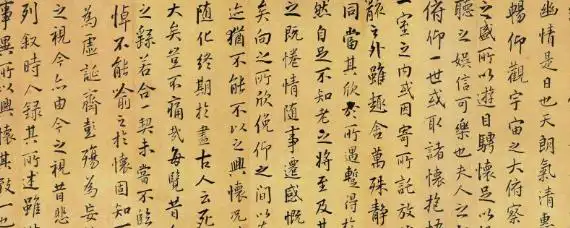 幽情是日也天朗氣清惠
暢仰觀宇宙之大俯察
之盛所以遊目騁懷足以
聽之娛信可樂也夫人之
俯仰一世或取諸懷抱悟
一室之內或因寄所託放
骸之外雖趣舍萬殊靜
同當其欣於所遇蹔得於
然自足不知老之將至及其
之既惓情隨事遷感慨
矣向之所欣俛仰之間以
迹猶不能不以之興懷況
隨化終期於盡古人云死
大矣豈不痛哉每覽昔
之緣若合一契未嘗不臨
悼不能喻之於懷固知一
為虛誕齊彭殤為妄
之視今亦由今之視昔悲
列叙時人録其所述雖
事異所以興懷其致一也